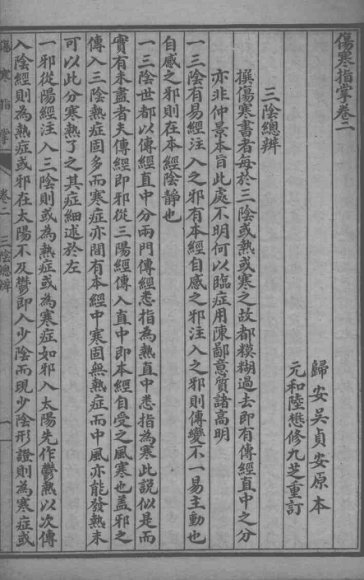 傷寒指掌卷二
歸安吳貞安原本
元和陸懋修九芝重訂
三陰總辨
撰傷寒書者每於三陰或熱或寒之故都糢糊過去即有傳經直中之分
亦非仲景本旨此處不明何以臨症用陳鄙意質諸高明
一三陰有易經注入之邪有本經自感之邪注入之邪則傳變不一易主動也
自感之邪則在本經陰靜也
一三陰世都以傳經直中分兩門傳經悉指為熱直中悉指為寒此說似是而
實有未盡者夫傳經即邪從三陽經傳入直中即本經自受之風寒也蓋邪之
傳入三陰熱症固多而寒症亦間有本經中寒固無熱症而中風亦能發熱未
可以此分寒熱了之其症細述於左
一邪從陽經注入三陰則或為熱症或為寒症如邪入太陽先作鬱熱以次傳
入陰經則為熱症或邪在太陽不及鬱即入少陰而現少陰形證則為寒症或
傷寒指掌
卷二
三陰總辨
一